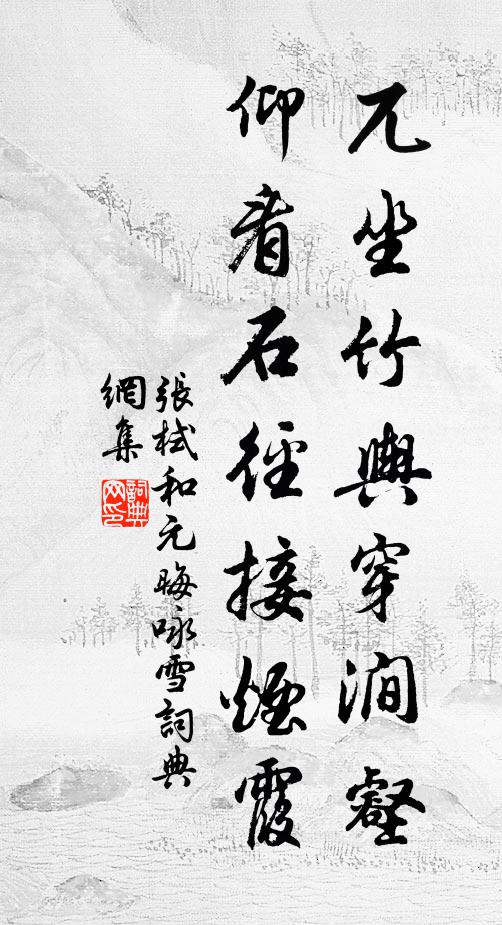 兀坐竹輿穿澗壑
仰看石徑接煙霞
張栻和元晦咏雪詞典
網集
詞典
网印